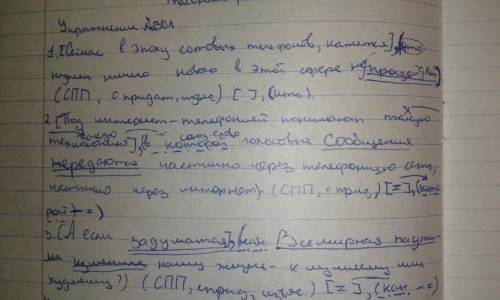 Упражнение №301
1. [Сейчас в эпоху сотовых телефонов, кажется], (что
ничего нового в этой сфере не произойдёт)
(СПП, с придат, изъяс) [ ], (что).
2. [Под интернет-телефонией понимают такую
технологию], (в которой голосовые сообщения
передаются частично через телефонную сеть,
частично через интернет). (СПП, с прид,) [=], (кото
рой - =)
3. [А если задуматься], (как Всемирная паути-
на изменила нашу жизнь - к лучшему или
худшему?) (СПП, с прид, изъяс.) [=], (как - =)